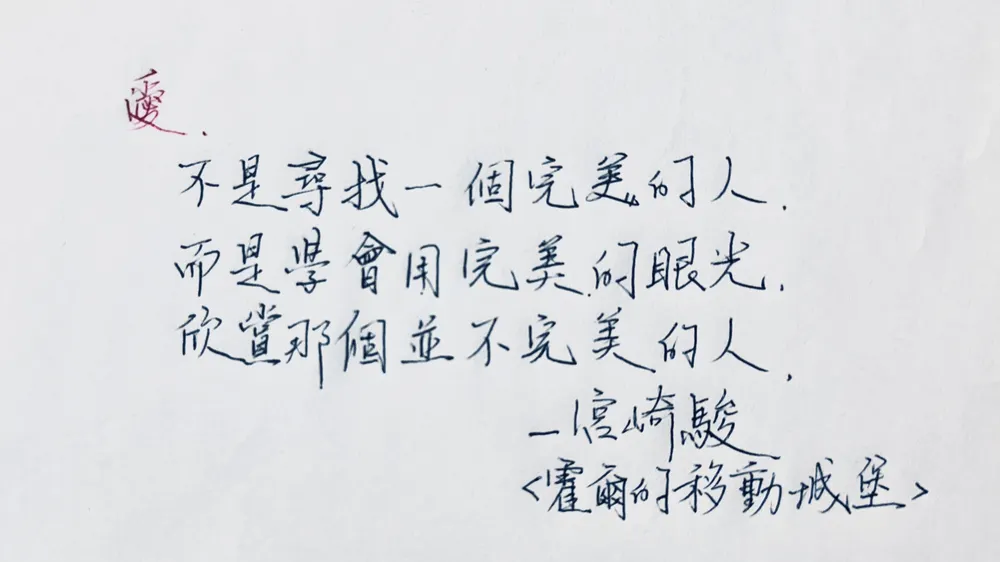 愛.
不是尋找一個完美的人.
而是學會用完美的眼光.
欣賞那個並不完美的人.
—宮崎駿
<霍爾的移動城堡>